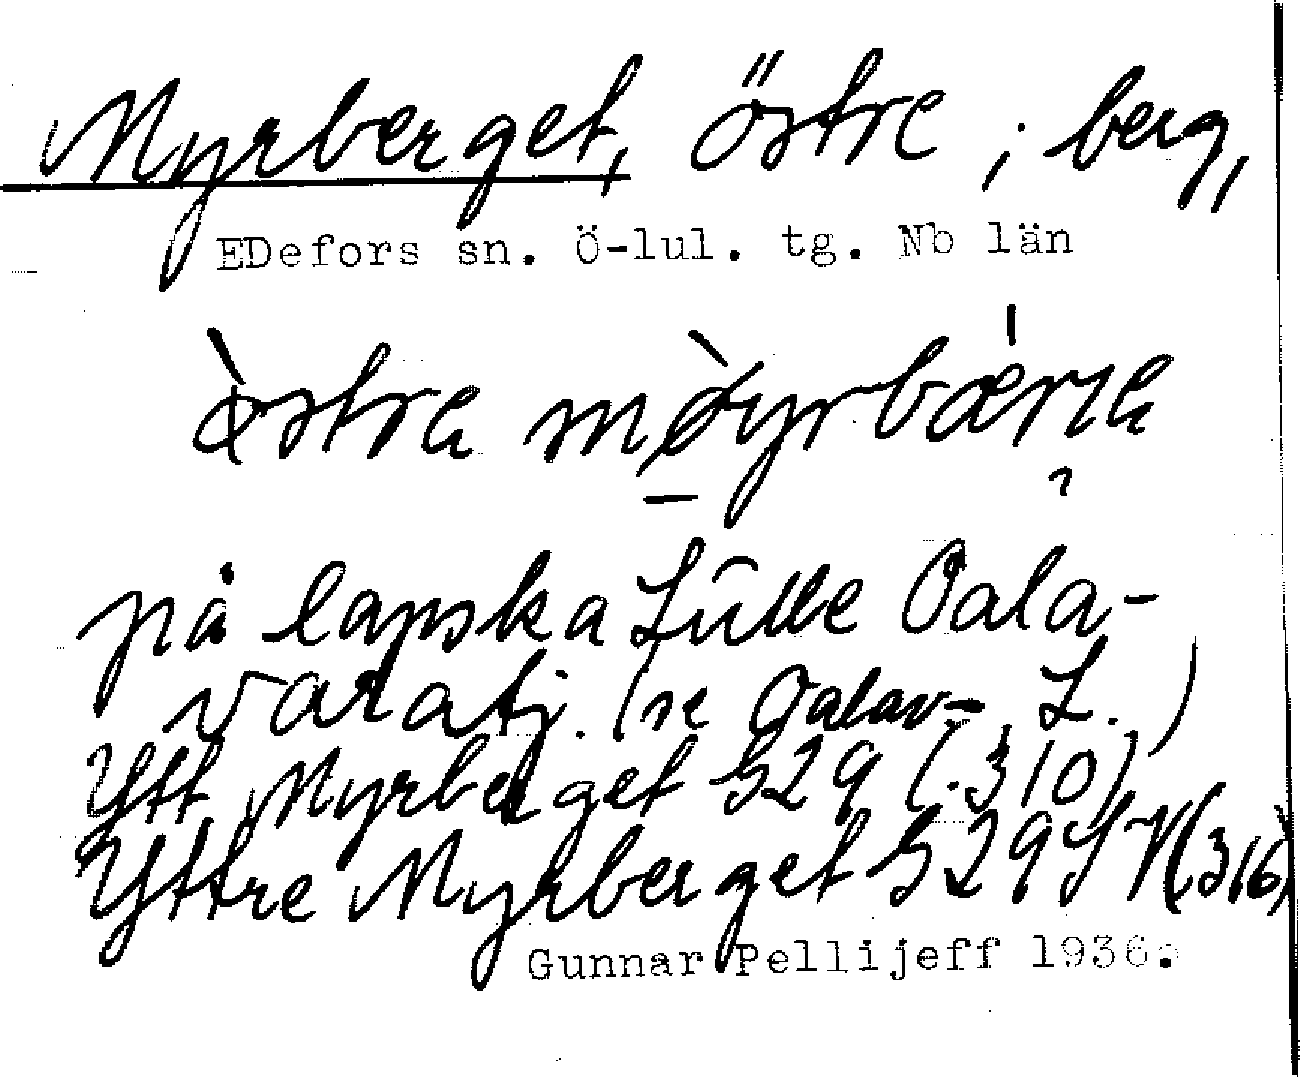 Myrberget, östre ; berg,
EDefors sn. Ö-lul. tg. Nb län
östra möyrbærje
på lapska Lûlle Oala-
varatj. (se Oalav-, L.)
Ytt Myrberget 529 (.310)
Yttre Myrberget 529 (316)
Gunnar Pellijeff 1936.